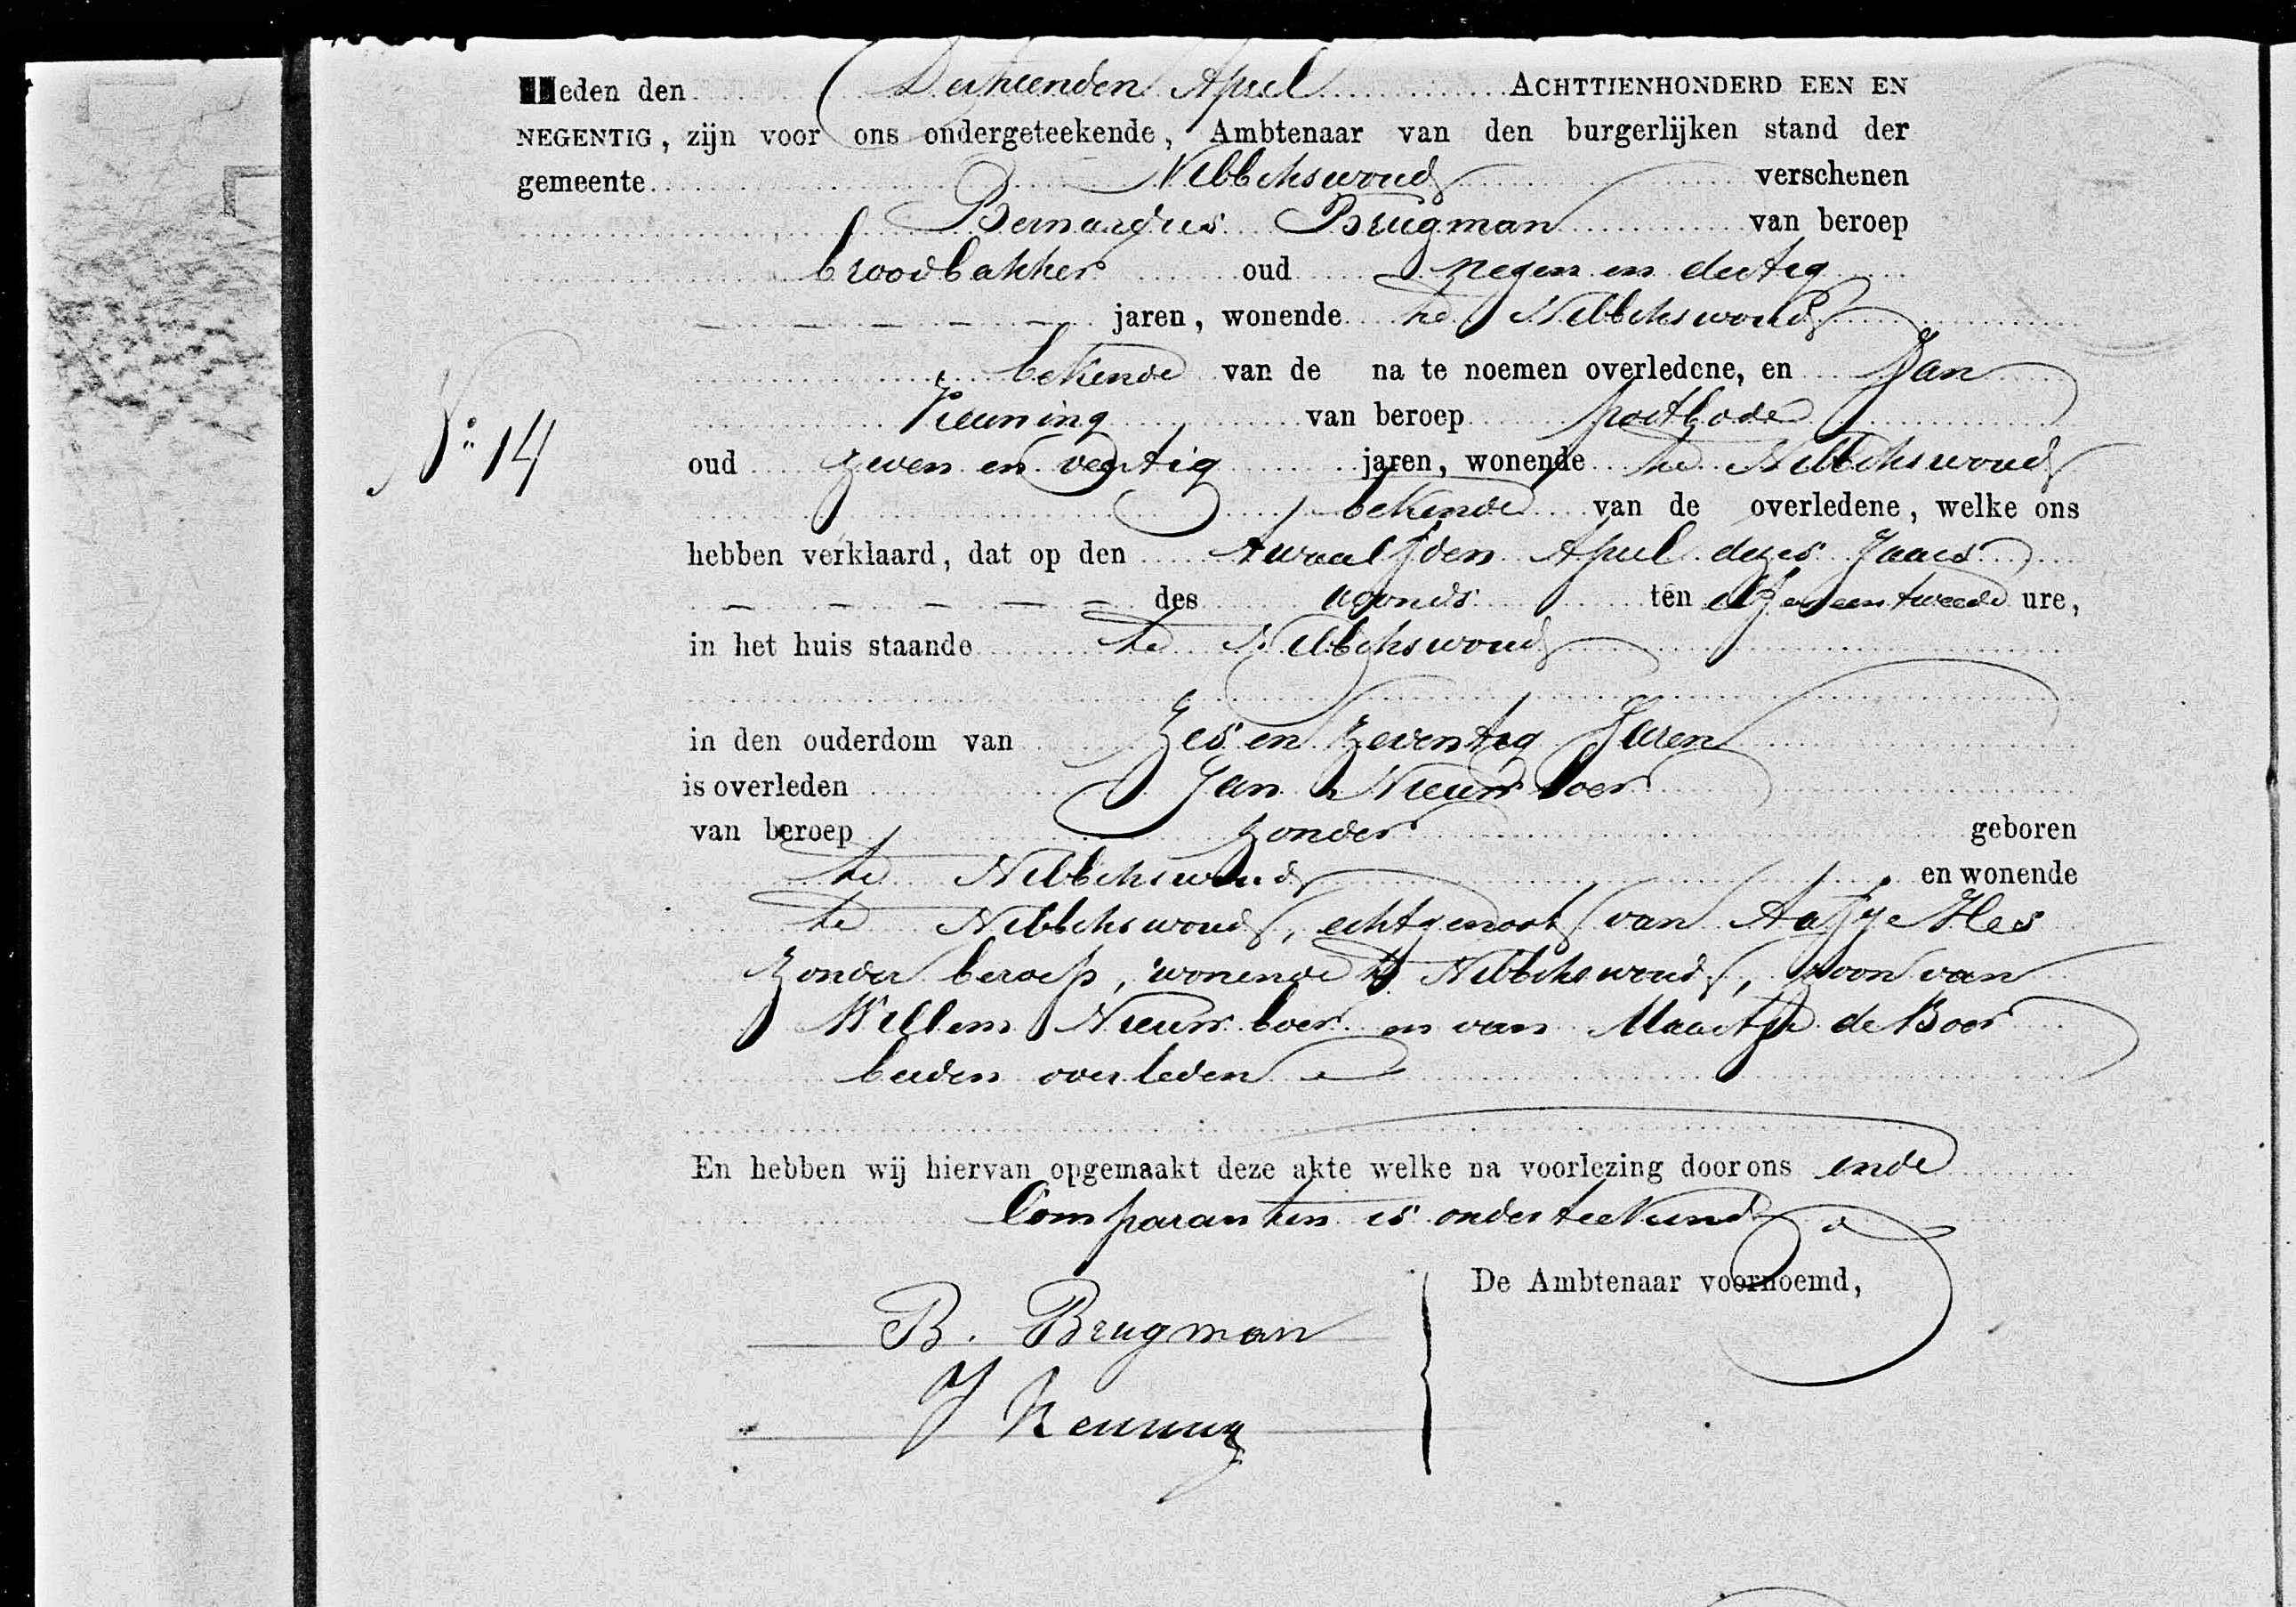 Heden den Dertienden April ACHTTIENHONDERD EEN EN
NEGENTIG, zijn voor ons ondergeteekende, Ambtenaar van den burgerlijken stand der
gemeente Nibbikswoud verschenen
Bernardus Brugman van beroep
broodbakker oud negen en dertig
jaren, wonende te Nibbikswoud
bekende van de na te noemen overledene, en Jan
Keuning van beroep postbode
No 14
oud zeven en veertig jaren, wonende te Nibbikswoud
bekende van de overledene, welke ons
hebben verklaard, dat op den twaalfden April dezes Jaars
des avonds ten elf en een tweede ure,
in het huis staande te Nibbikswoud
in den ouderdom van Zes en Zeventig Jaren
is overleden Jan Nieuwboer
van beroep zonder geboren
te Nibbikswoud en wonende
te Nibbikswoud, echtgenoot van Aafje Hes
zonder beroep, wonende te Nibbikswoud, zoon van
Willem Nieuwboer en van Maartje de Boer
beiden overleden
En hebben wij hiervan opgemaakt deze akte welke na voorlezing door ons en de
Comparanten is onderteekend
De Ambtenaar voornoemd,
B. Brugman
J Keuning